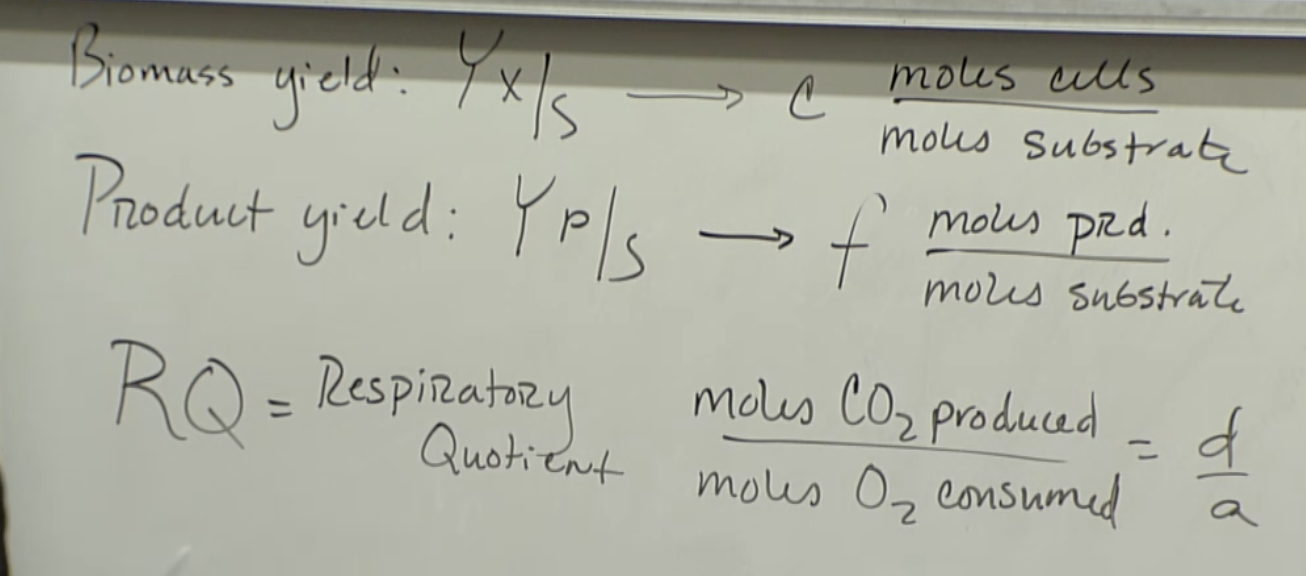 Biomass yield: Yx/s → c moles cells / moles substrate
Product yield: YP/s → f moles pRd. / moles substrate
RQ = Respiratory Quotient moles CO₂ produced / moles O₂ consumed = d/a